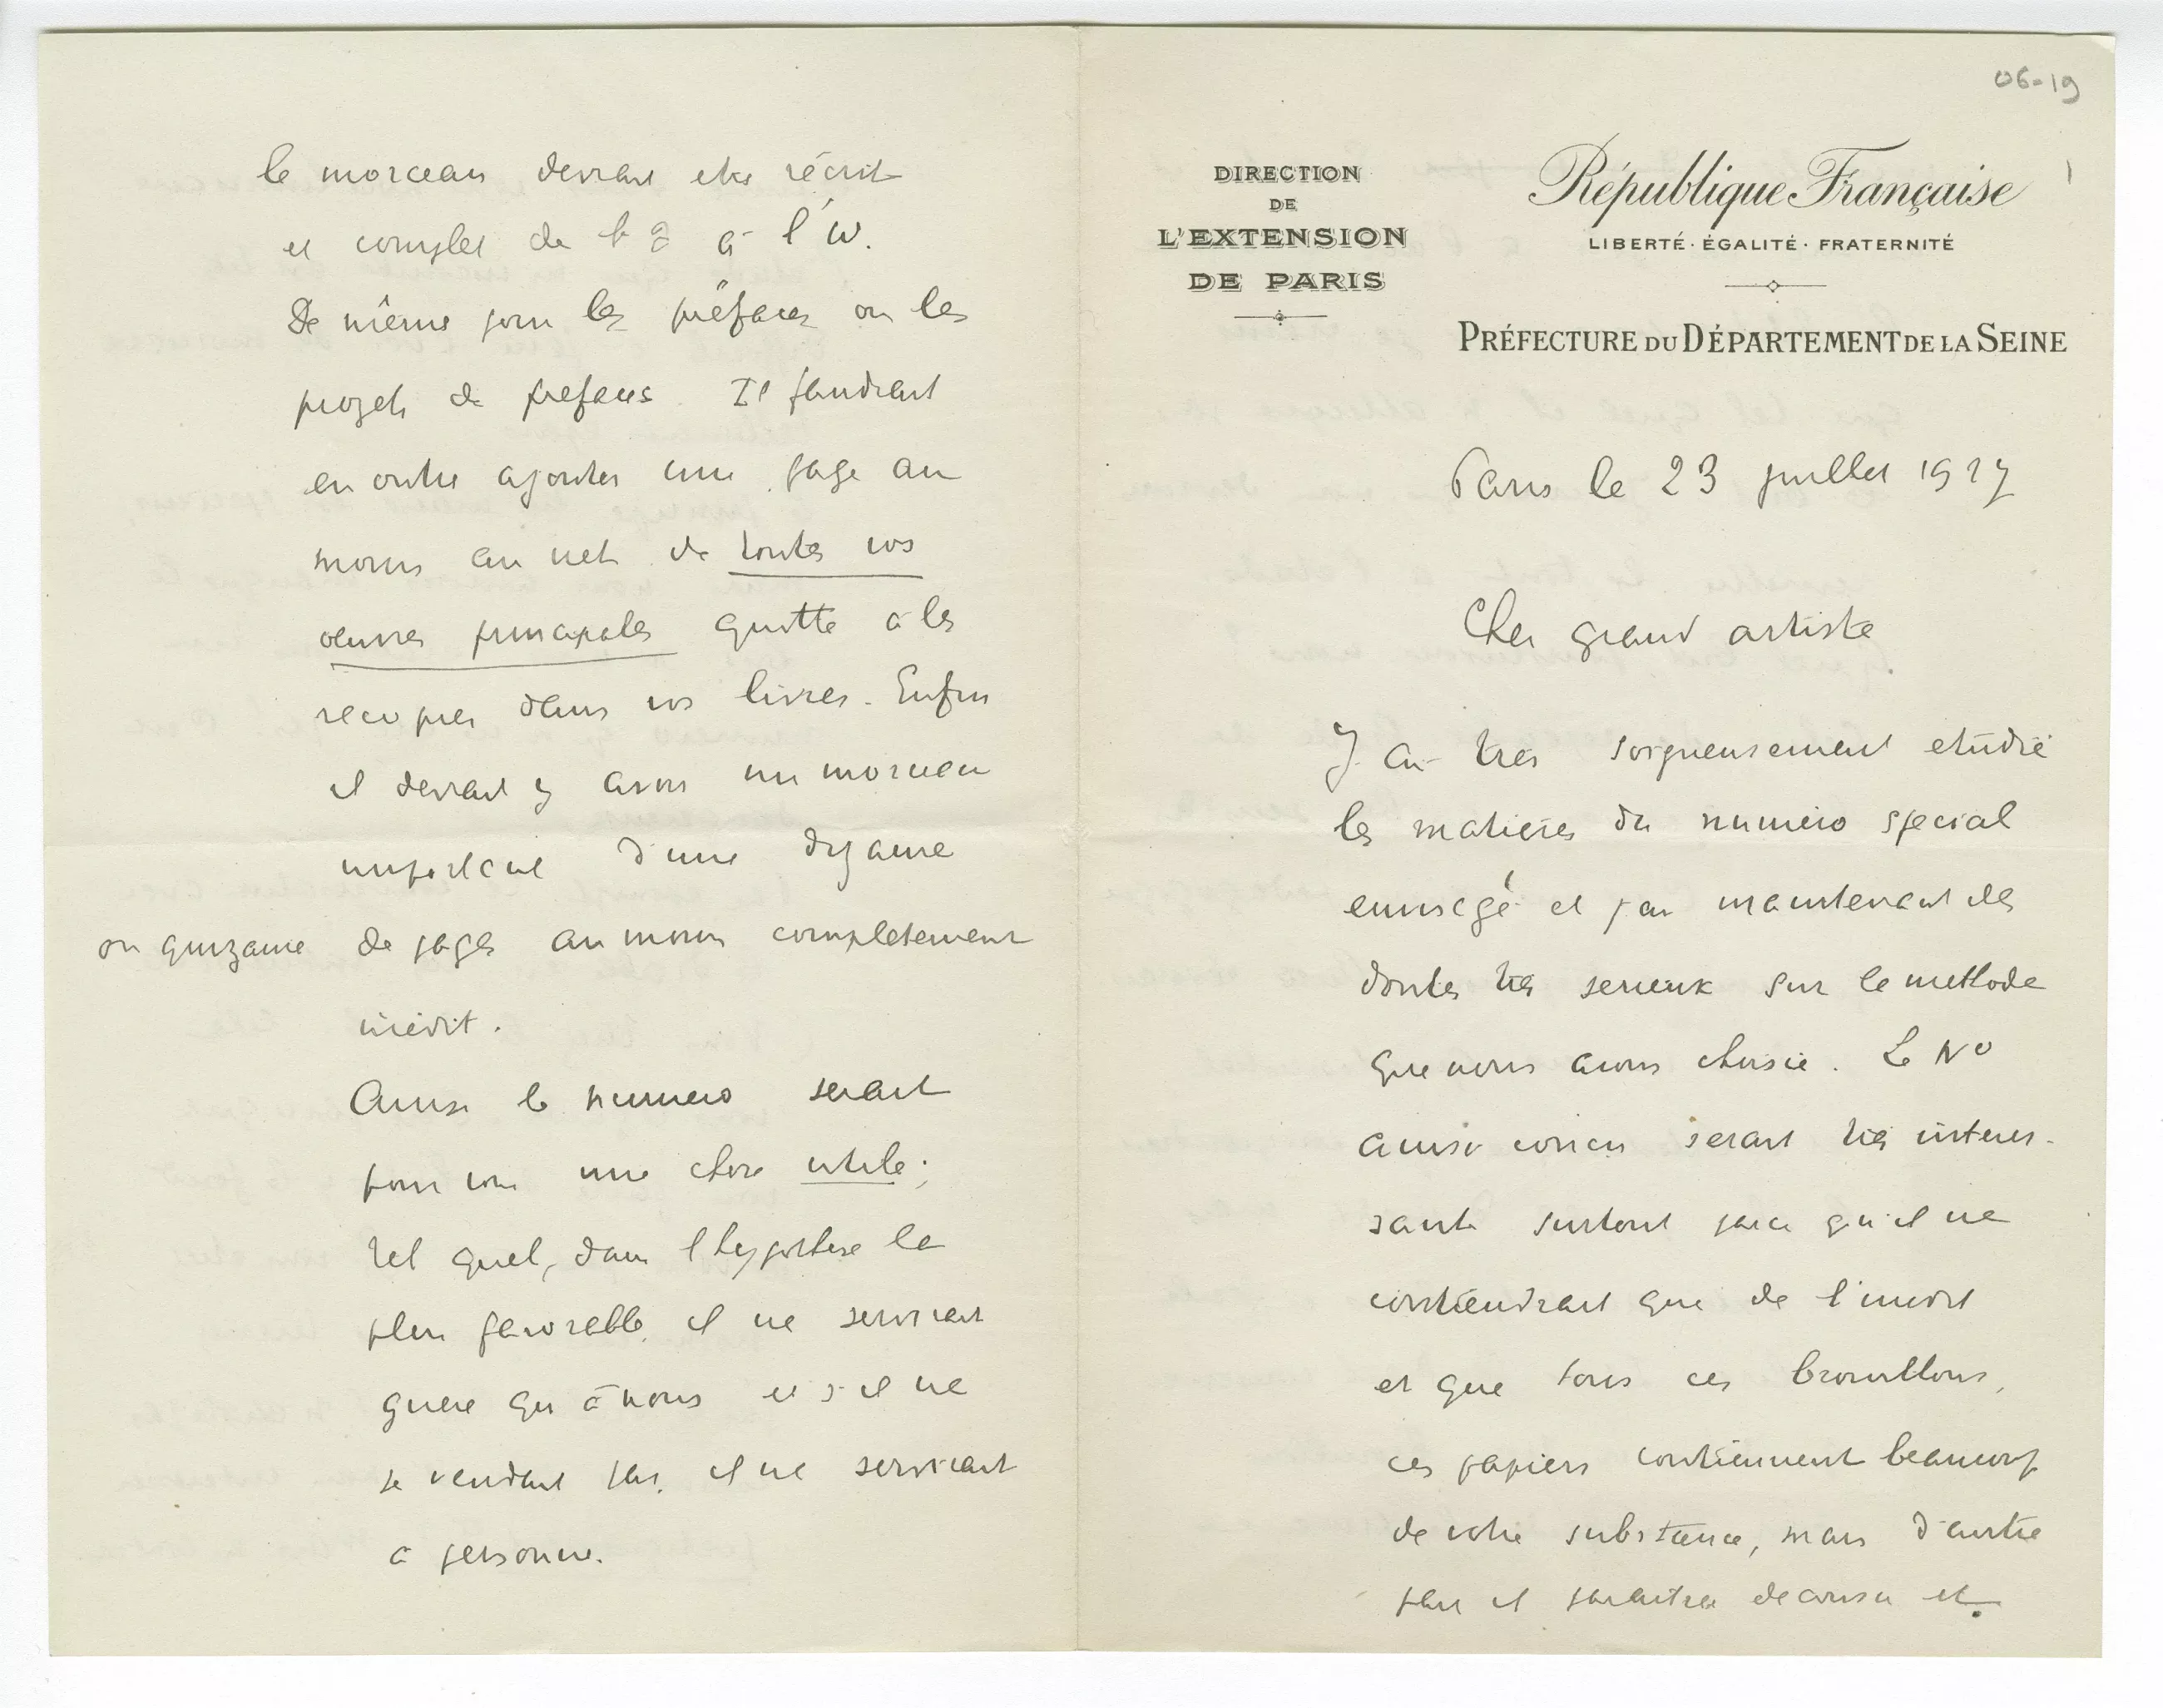 06-19
DIRECTION
DE
L'EXTENSION
DE PARIS
République Française
LIBERTÉ · ÉGALITÉ · FRATERNITÉ
PRÉFECTURE DU DÉPARTEMENT DE LA SEINE
Paris le 23 juillet 1927
Cher grand artiste
J'ai tres soigneusement etudié
les matieres du numéro special
envisagé et j'ai maintenant des
doutes tres serieux sur la methode
que nous avons choisie. Le N°
ainsi concu serait tres interes-
sant surtout parce qu'il ne
contiendrait que de l'inedit
et que tous ces brouillons,
ces papiers contiennent beaucoup
de votre substance, mais d'autre
part il paraitra decousu et
le morceau devrait etre récrit
et complet de l'α à l'ω.
De même pour les préfaces ou les
projets de prefaces. Il faudrait
en outre ajouter une page au
moins au net de toutes vos
oeuvres principales quitte à les
recopier dans vos livres. Enfin
il devrait y avoir un morceau
important d'une dizaine
ou quinzaine de pages au moins completement
inédit.
Ainsi le numero serait
pour vous une chose utile;
tel quel, dans l'hypothese la
plus favorable, il ne servirait
guere qu'à nous et s'il ne
se vendait pas, il ne servirait
à personne.